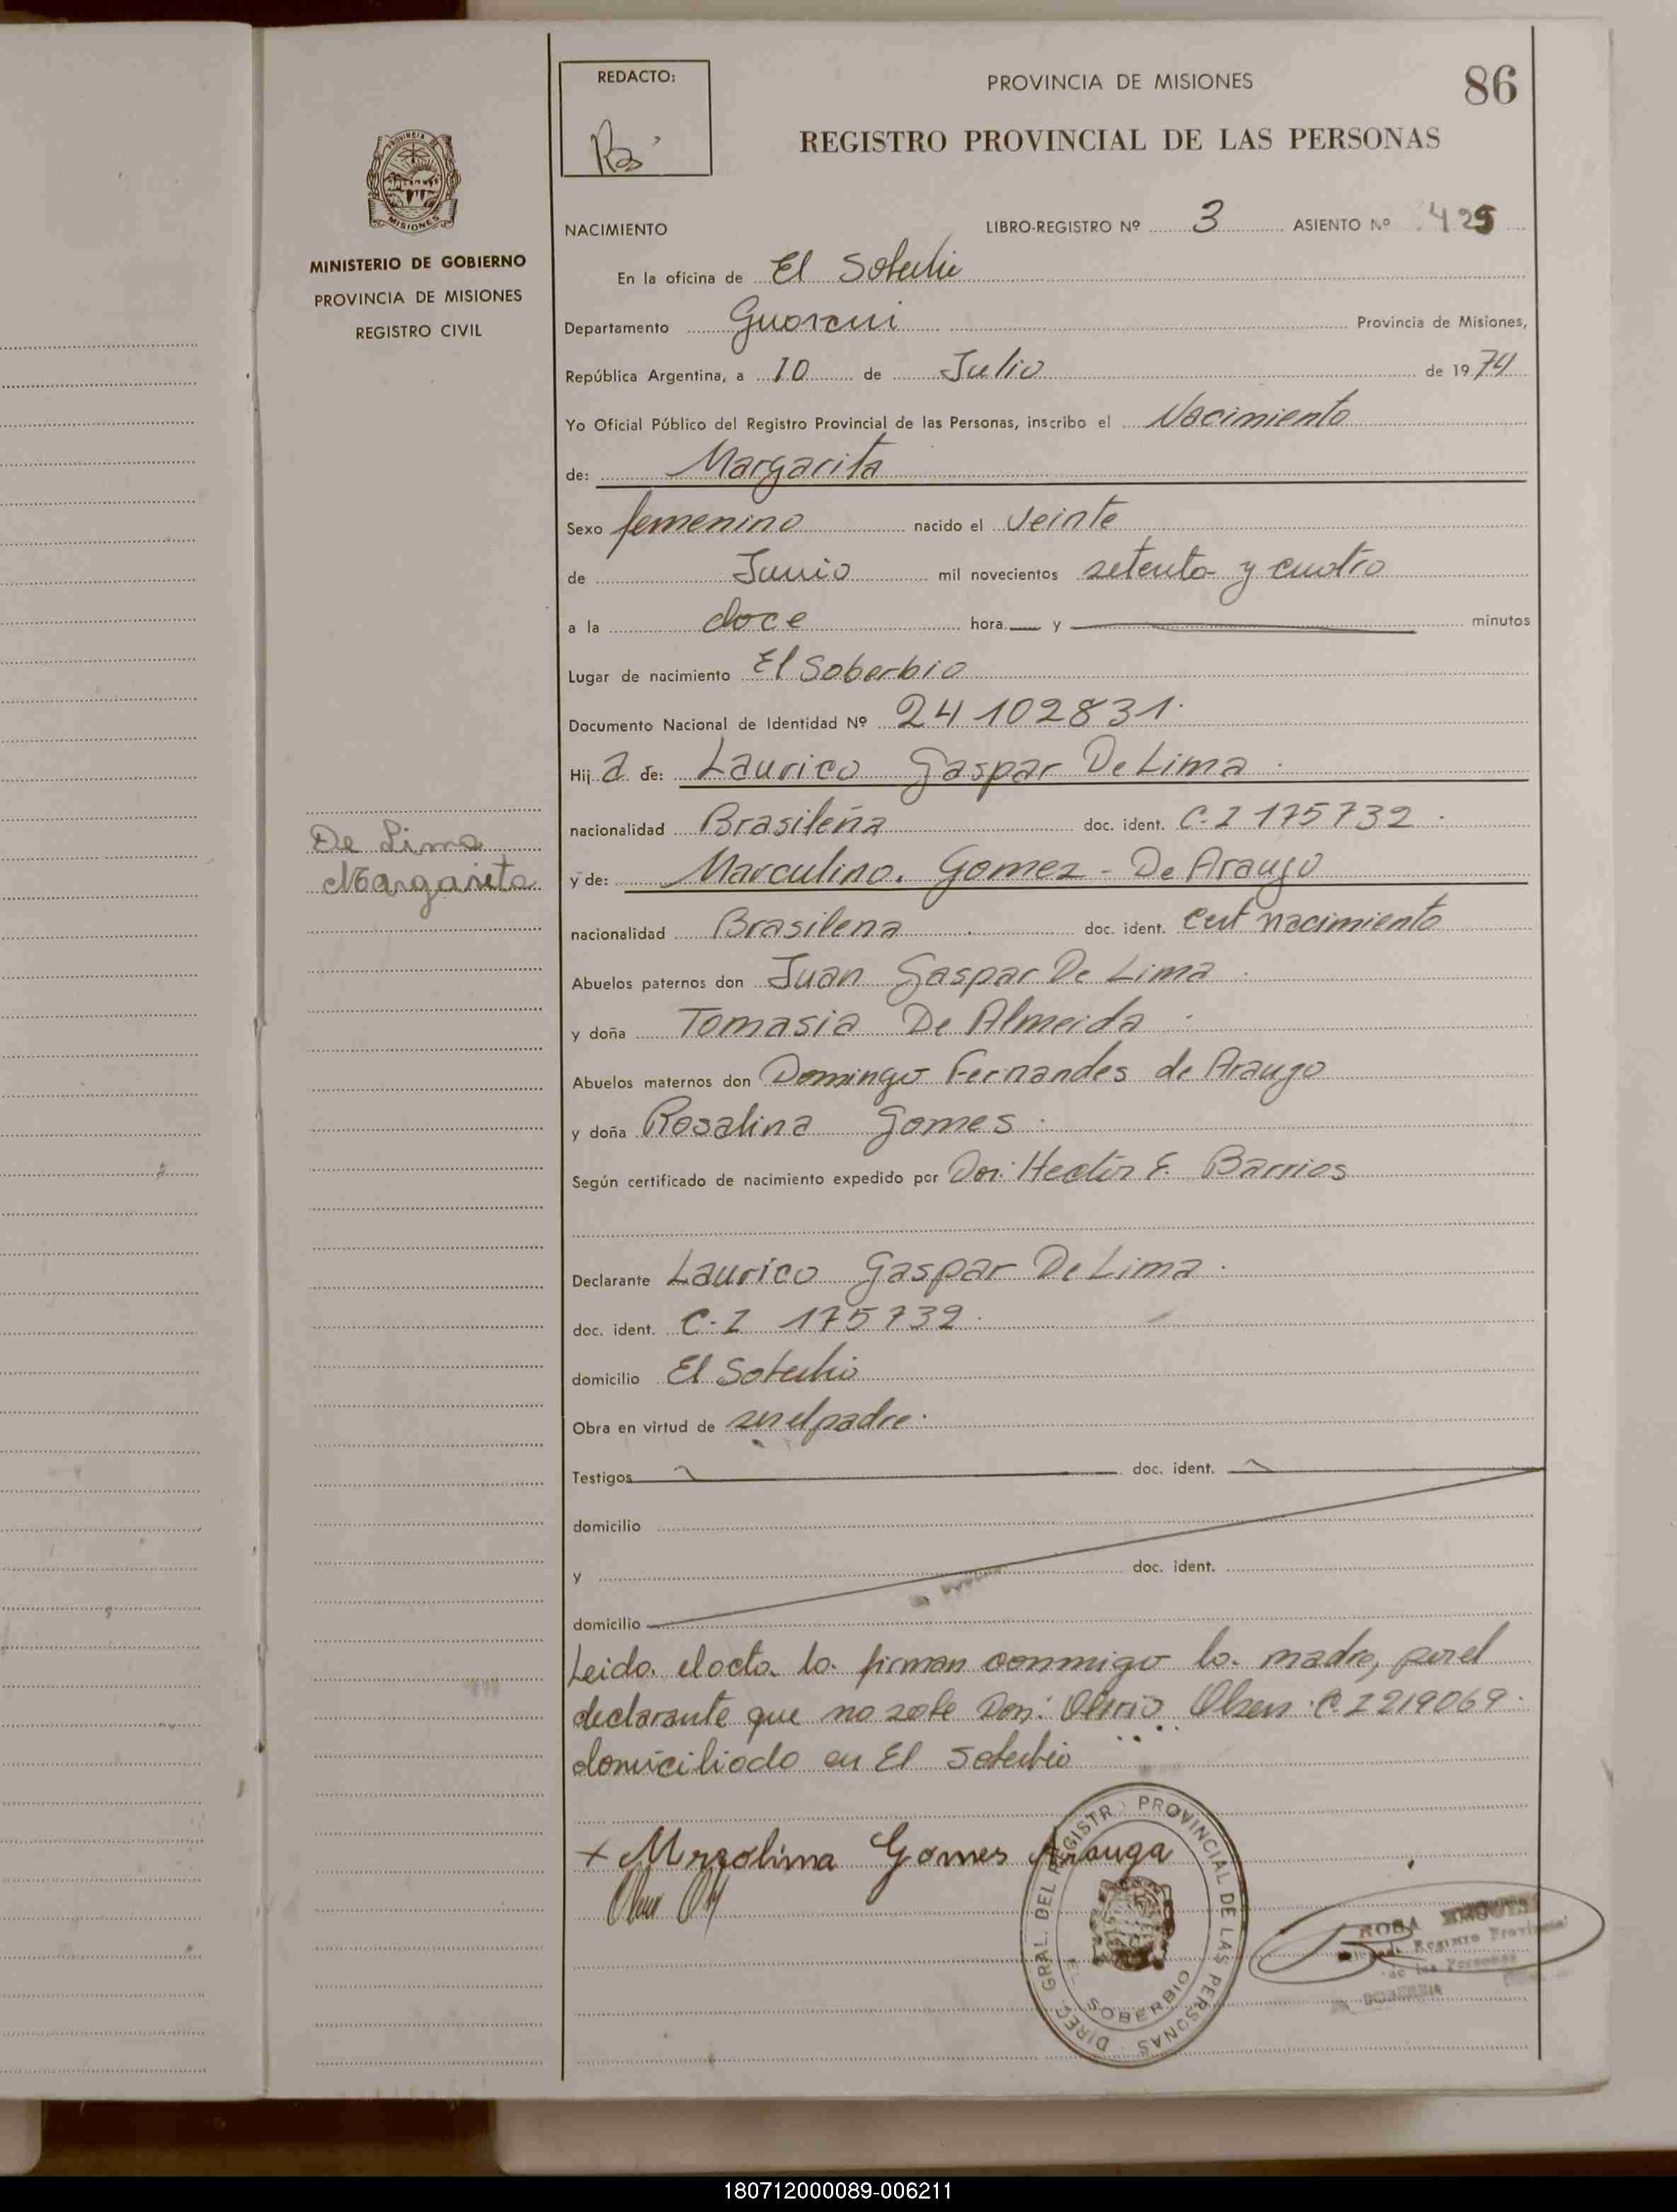 REDACTO:
PROVINCIA DE MISIONES
86
REGISTRO PROVINCIAL DE LAS PERSONAS
PROVINCIA DE
MISIONES
MINISTERIO DE GOBIERNO
PROVINCIA DE MISIONES
REGISTRO CIVIL
NACIMIENTO
LIBRO-REGISTRO Nº 3 ASIENTO Nº 425
En la oficina de El Soberbio
Departamento Guarani Provincia de Misiones,
República Argentina, a 10 de Julio de 1974
Yo Oficial Público del Registro Provincial de las Personas, inscribo el Nacimiento
de: Margarita
Sexo femenino nacido el veinte
de Junio mil novecientos setenta y cuatro
a la doce hora y minutos
Lugar de nacimiento El Soberbio
Documento Nacional de Identidad Nº 24102831.
Hija de: Laurico Gaspar De Lima.
nacionalidad Brasileña doc. ident. C.I 175732.
De Lima
Margarita
y de: Marculina. Gomez - De Araujo
nacionalidad Brasilena doc. ident. Cert nacimiento
Abuelos paternos don Juan Gaspar De Lima.
y doña Tomasia De Almeida.
Abuelos maternos don Domingo Fernandes de Araujo
y doña Rosalina Gomes.
Según certificado de nacimiento expedido por Don: Hector E. Barrios
Declarante Laurico Gaspar De Lima.
doc. ident. C.I 175732.
domicilio El Soberbio
Obra en virtud de ser el padre.
Testigos doc. ident.
domicilio
y doc. ident.
domicilio
Leida el acta la firman conmigo la madre, por el
declarante que no sabe Don: Olsen C.I 219069.
domiciliado en El Soberbio
+ Mrzolima Gomes Arauga
DIREC. GRAL. DEL REGISTRO PROVINCIAL DE LAS PERSONAS
EL SOBERBIO
ROSA
Registro Provincial
de las Personas
180712000089-006211